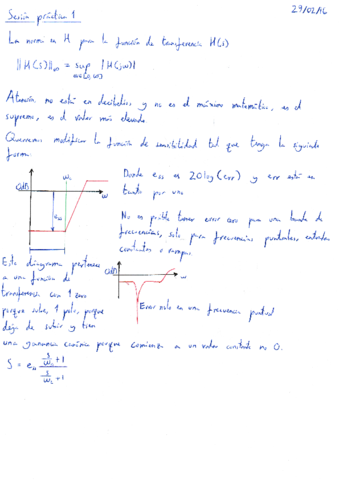 Sesión práctica 1
29/02/16
La norma en H para la función de transferencia H(s)
||H(s)||∞ = sup |H(jω)|
ω∈(0,∞)
Atención no está en decibelios y no es el máximo matemático, es el
supremo, es el valor más elevado
Queremos modificar la función de sensibilidad tal que tenga la siguiente
forma:
ω
Donde es 20log(err) y err está en
tanto por uno
No es posible tener error cero para una banda de
frecuencias, solo para frecuencias puntuales, entradas
constantes o rampas
Este diagrama pertenece
a una función de
transferencia con 1 cero
porque sube, 1 polo, porque
deja de subir y tiene
una ganancia porque comienza en un valor constante no 0.
Error nulo en una frecuencia puntual
S =